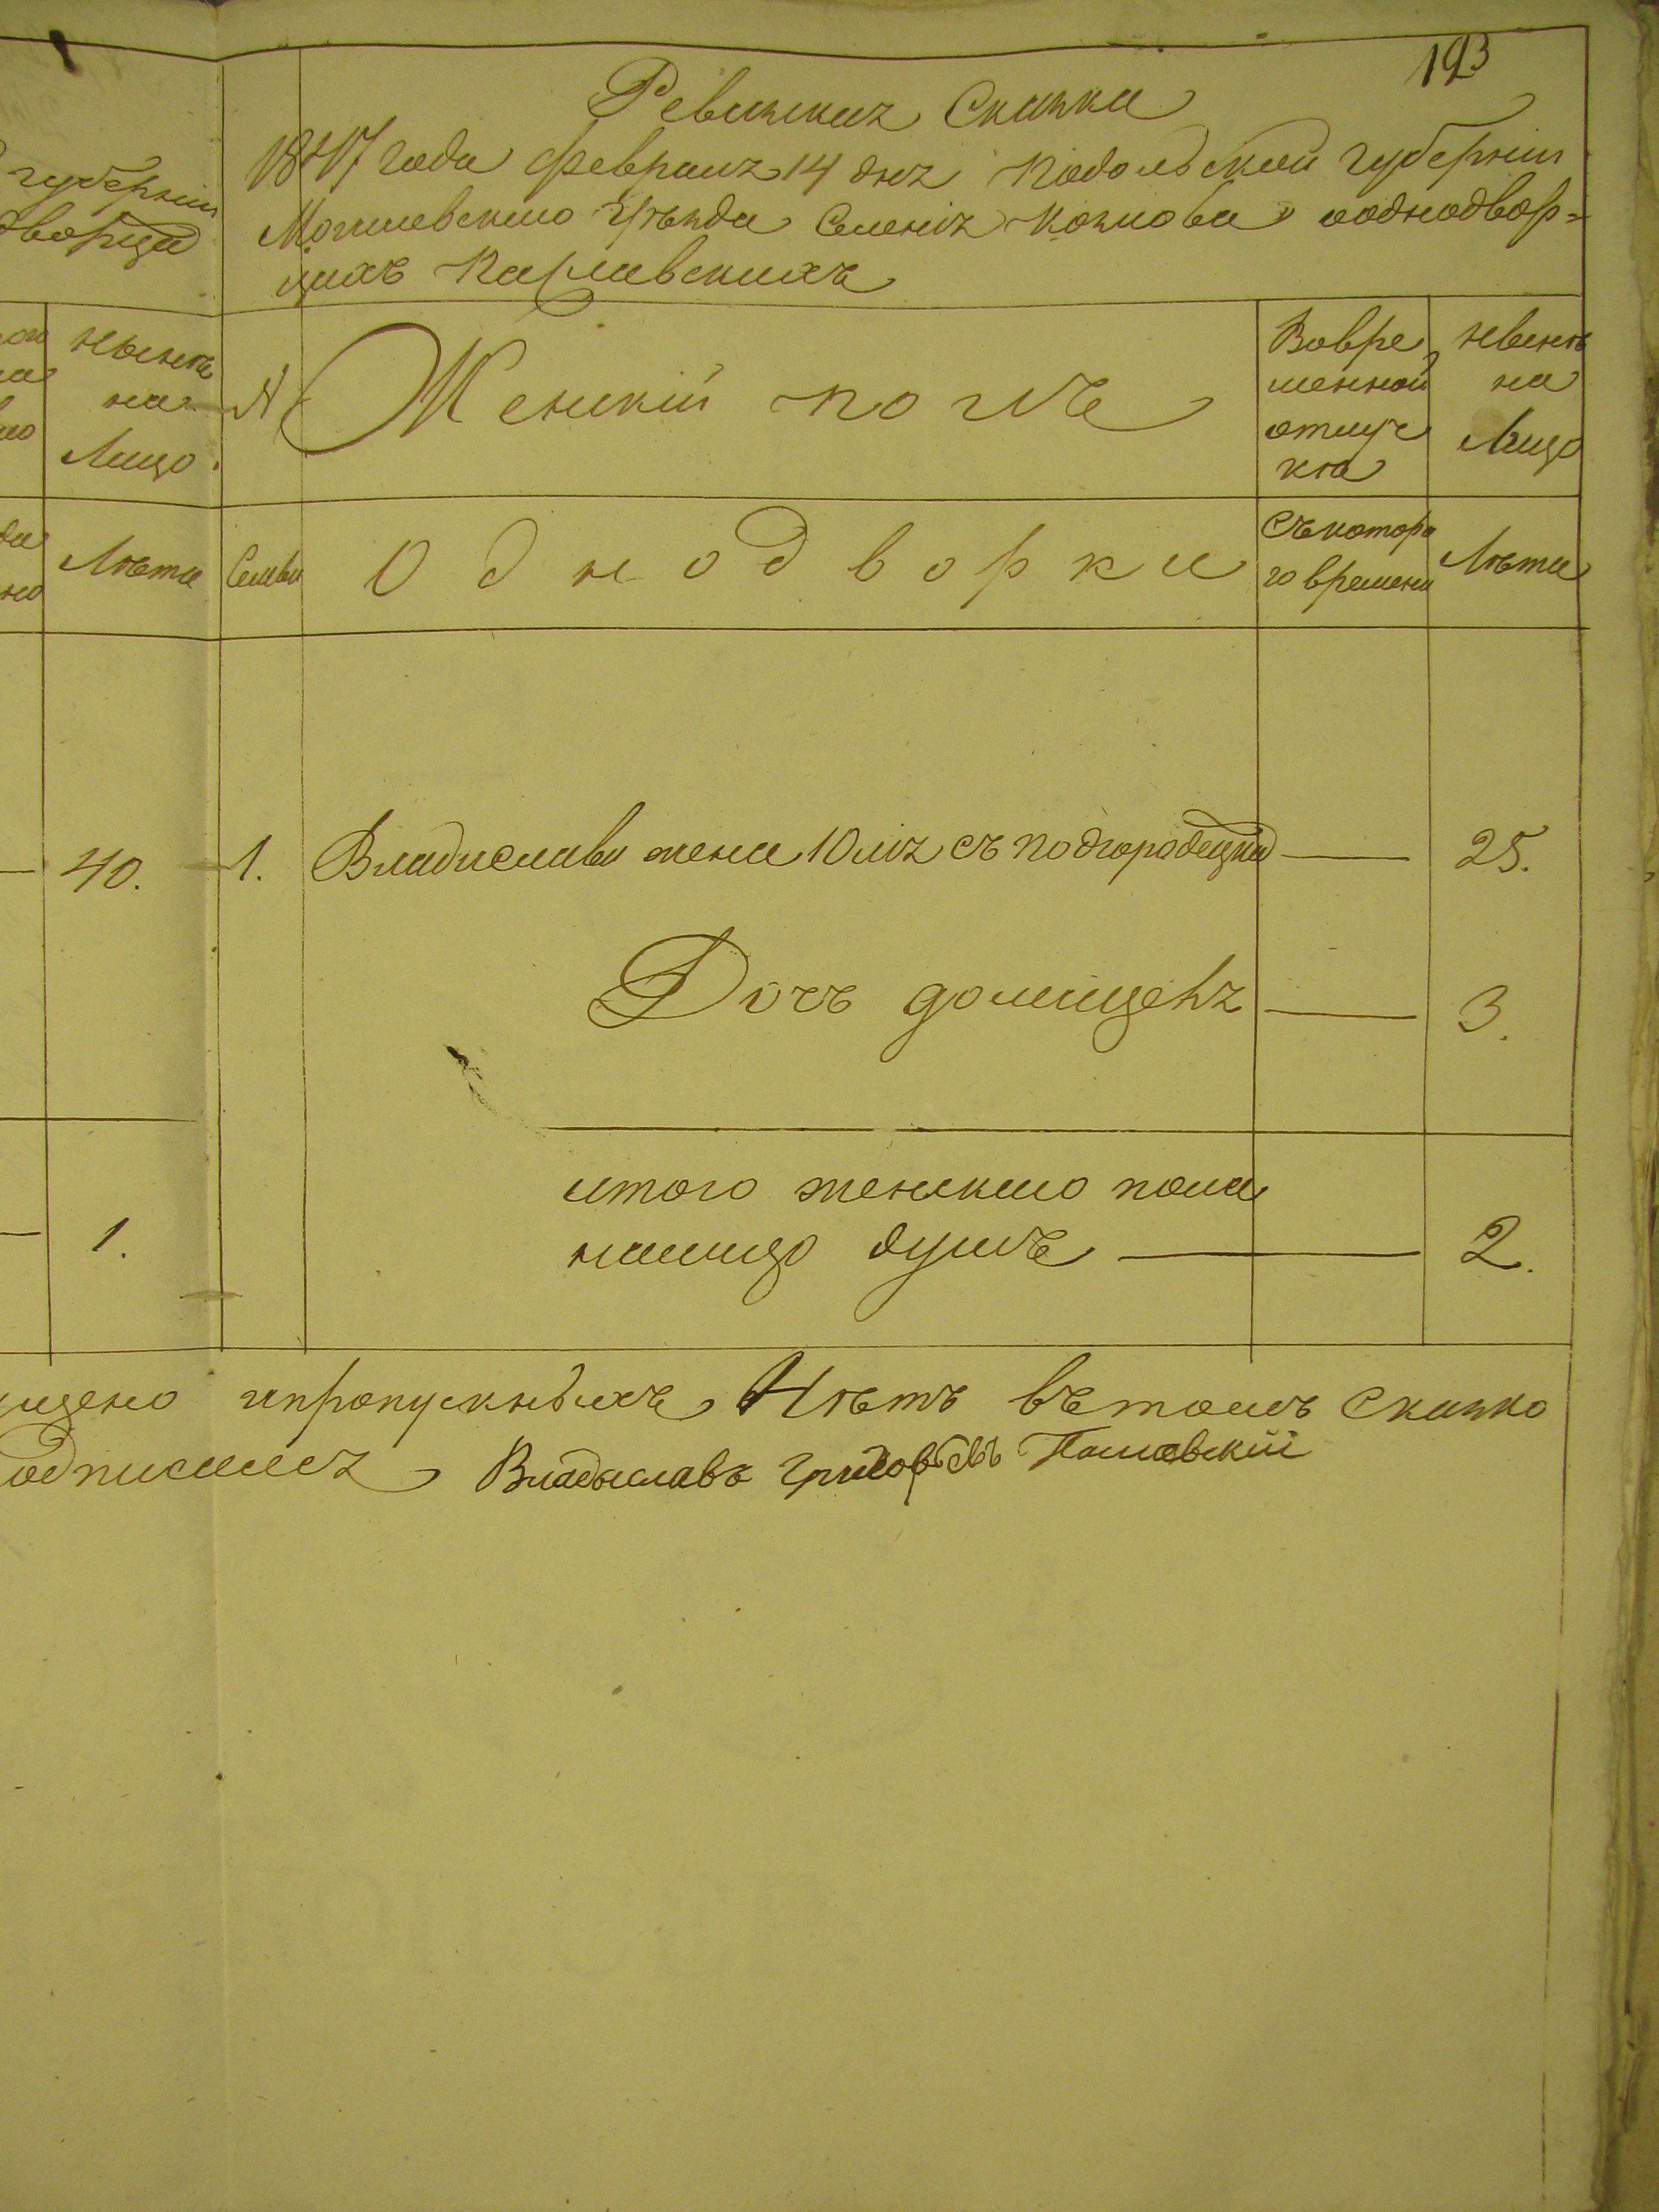 193
Ревизская Сказка
1847 года февраля 14 дня Подольской губернiи
Могилевскаго Уѣзда Селенiя Козлова ооднодвор=
цахъ
губернiи
дворца
нынѣ
на
Лицо
№
Женскiй полъ
Вовре
менной
отлуч
кѣ
нынѣ
на
Лицо
Лѣта
Семьи
Однодворки
Съкотора
го времени
Лѣта
40.
1.
Владислава жена Юлiя съ Подгородецкихъ
25.
Дочь Домицеля
3.
1.
итого женскаго пола
налицо душъ
2.
ипропускныхъ Нѣтъ вътомъ Сказко
Владыславъ